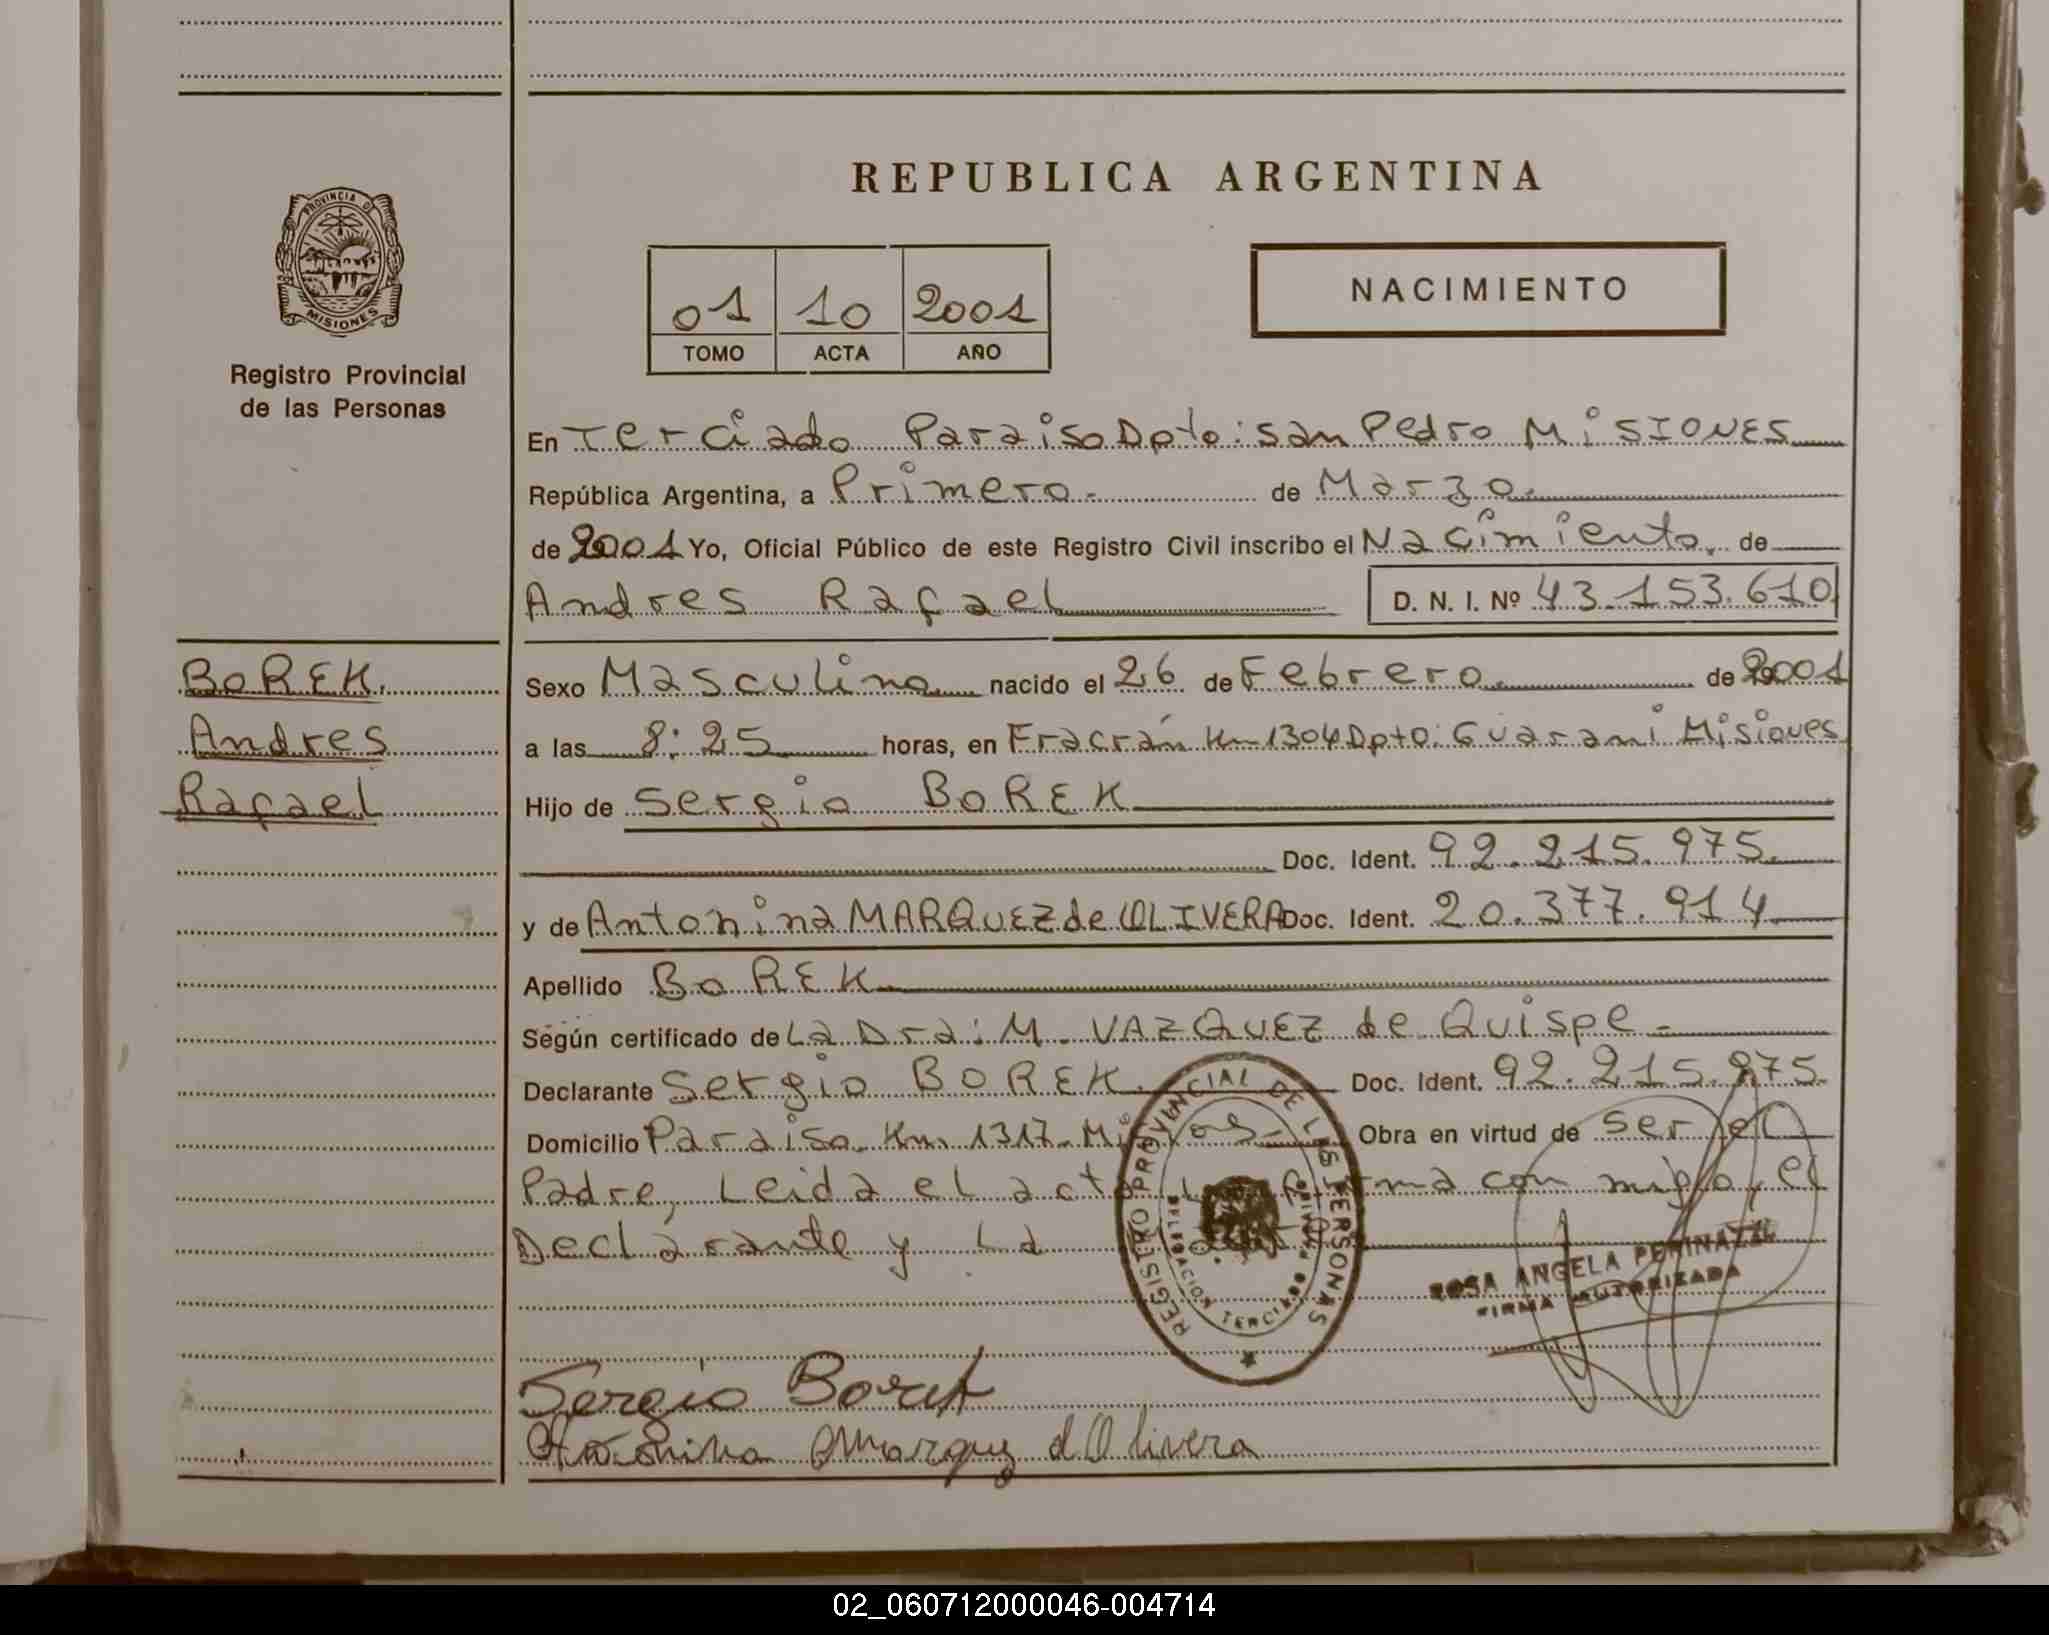 REPUBLICA ARGENTINA
PROVINCIA D
MISIONES
Registro Provincial
de las Personas
01 10 2001
TOMO ACTA AÑO
NACIMIENTO
En Terciado Paraiso Dpto: San Pedro MISIONES
República Argentina, a Primero. de Marzo.
de 2001 Yo, Oficial Público de este Registro Civil inscribo el Nacimiento. de
Andres Rafael D. N. I. Nº 43.153.610
BOREK.
Andres
Rafael
Sexo Masculino nacido el 26 de Febrero. de 2001
a las 8:25 horas, en Fracrán Km 1304 Dpto: Guarani Misiones
Hijo de Sergio BOREK
Doc. Ident. 92.215.975.
y de Antonina MARQUEZ de OLIVERA Doc. Ident. 20.377.914
Apellido BOREK
Según certificado de La Dra: M. VAZQUEZ de Quispe -
Declarante Sergio BOREK. Doc. Ident. 92.215.975.
Domicilio Paraiso Km. 1317 Obra en virtud de ser el
Padre, Leida el acta firma con migo, el
Declarante y La
REGISTRO PROVINCIAL DE LAS PERSONAS
DELEGACION TERCIADO
ROSA ANGELA
FIRMA AUTORIZADA
Sergio Borek
Antonina Marquez d Olivera
02_060712000046-004714